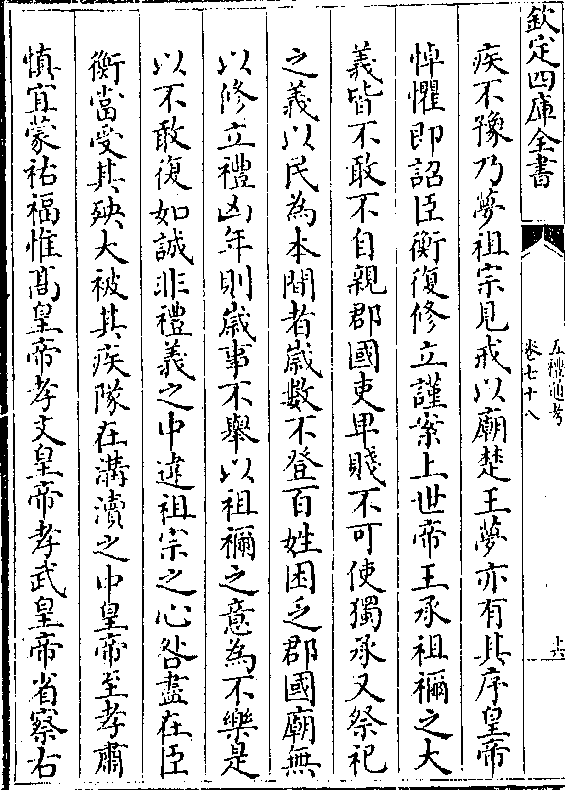 欽定四庫全書
五禮通考
卷七十八
疾不豫乃夢祖宗見戒以廟楚王夢亦有其序皇帝
悼懼即詔臣衡復修立謹案上世帝王承祖禰之大
義皆不敢不自親郡國吏卑賤不可使獨承又祭祀
之義以民為本間者歲數不登百姓困乏郡國廟無
以修立禮凶年則歲事不舉以祖禰之意為不樂是
以不敢復如誠非禮義之中違祖宗之心咎盡在臣
衡當受其殃大被其疾隊在溝瀆之中皇帝至孝肅
慎宜蒙祐福惟髙皇帝孝文皇帝孝武皇帝省察右